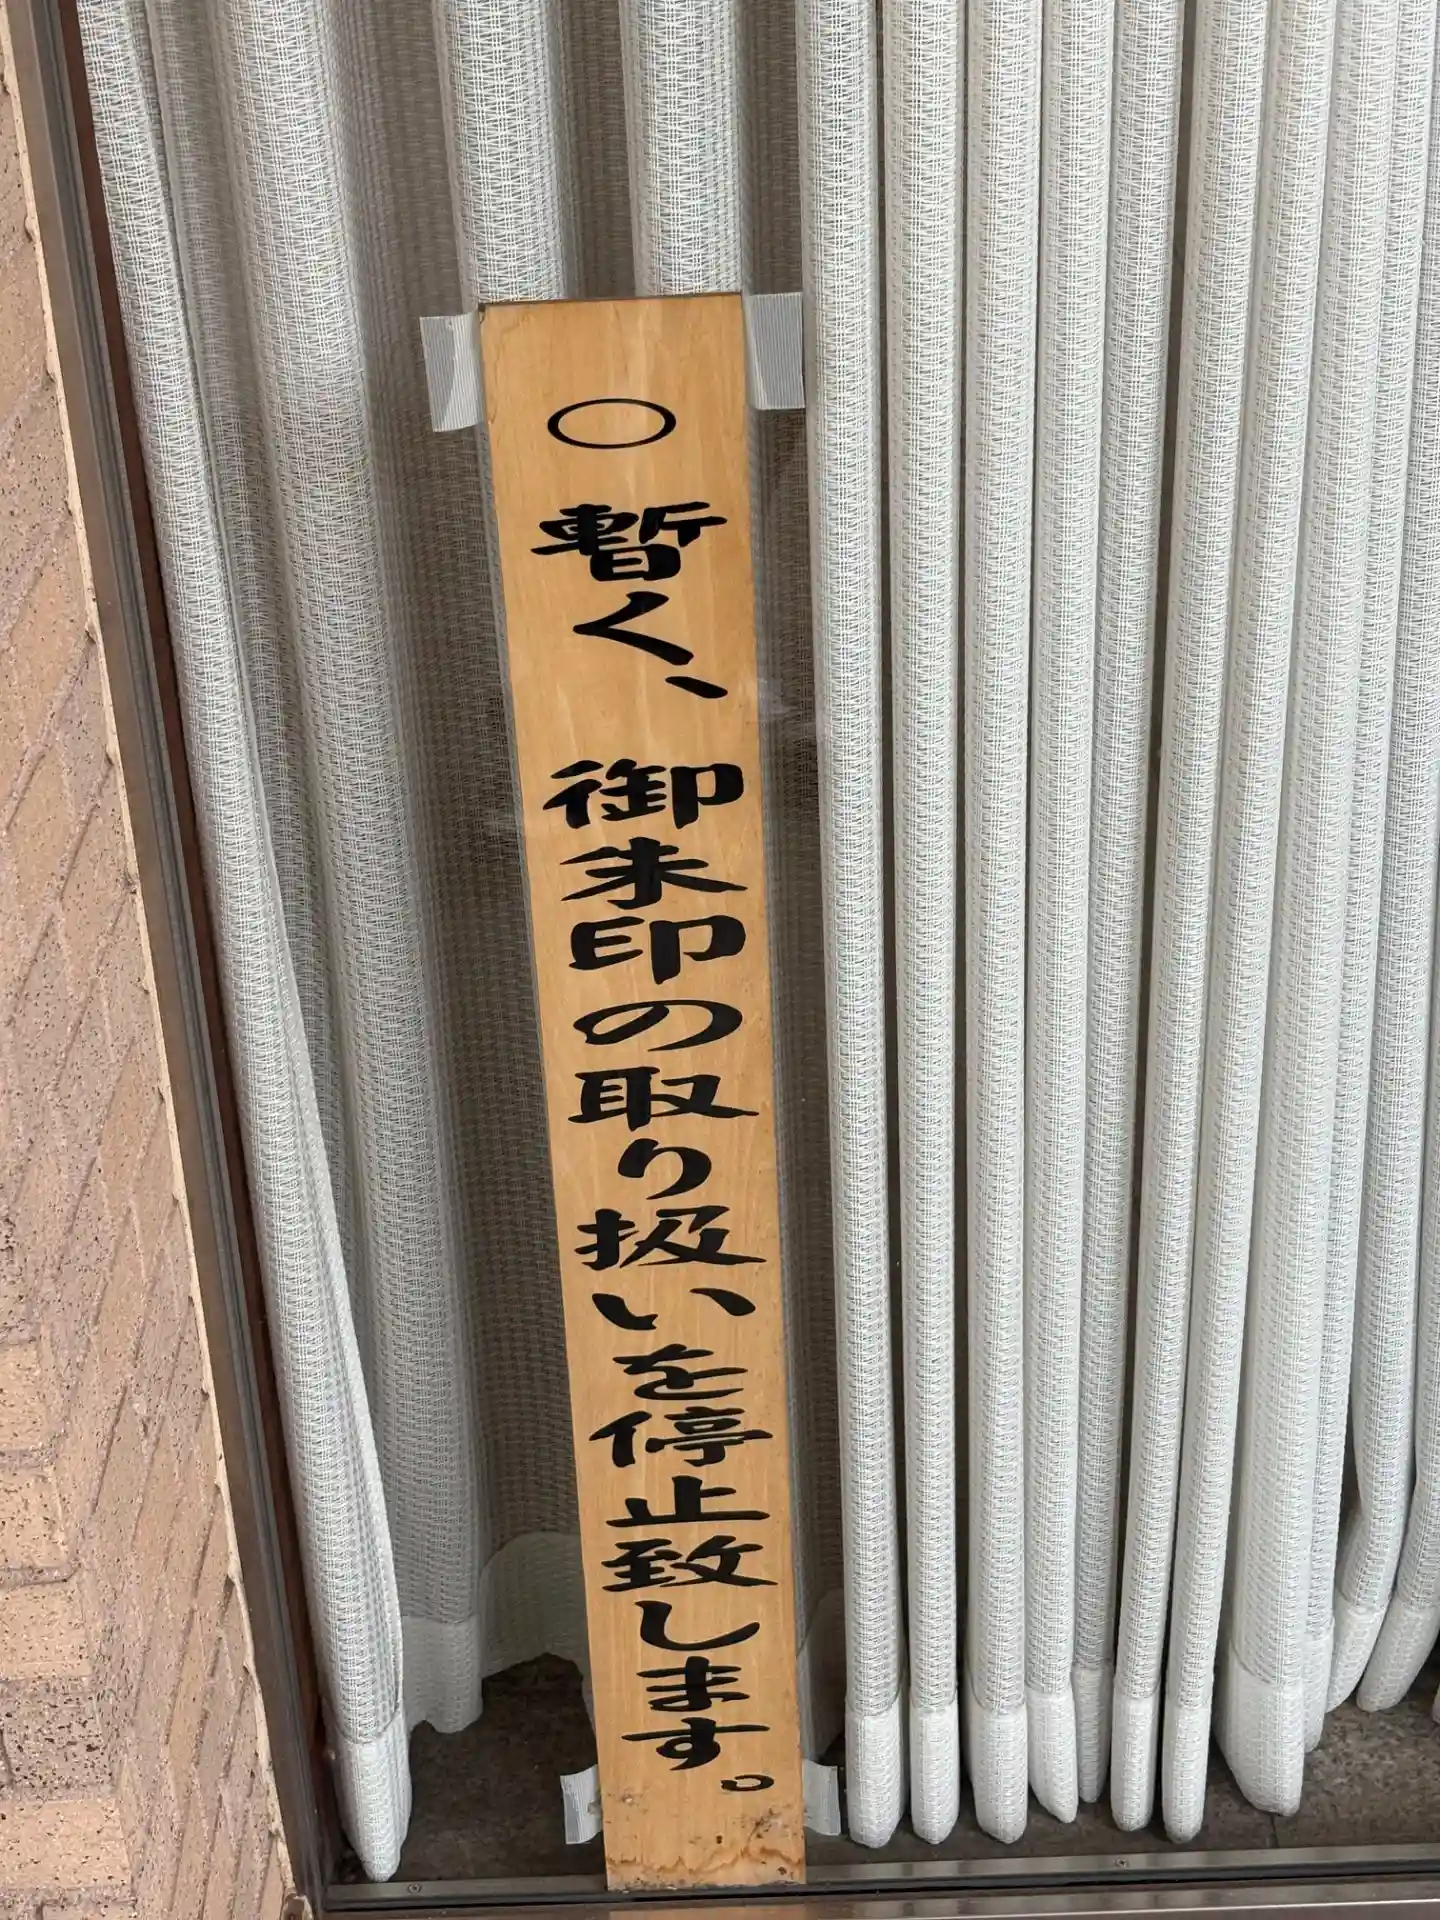 ○ 暫く、御朱印の取り扱いを停止致します。